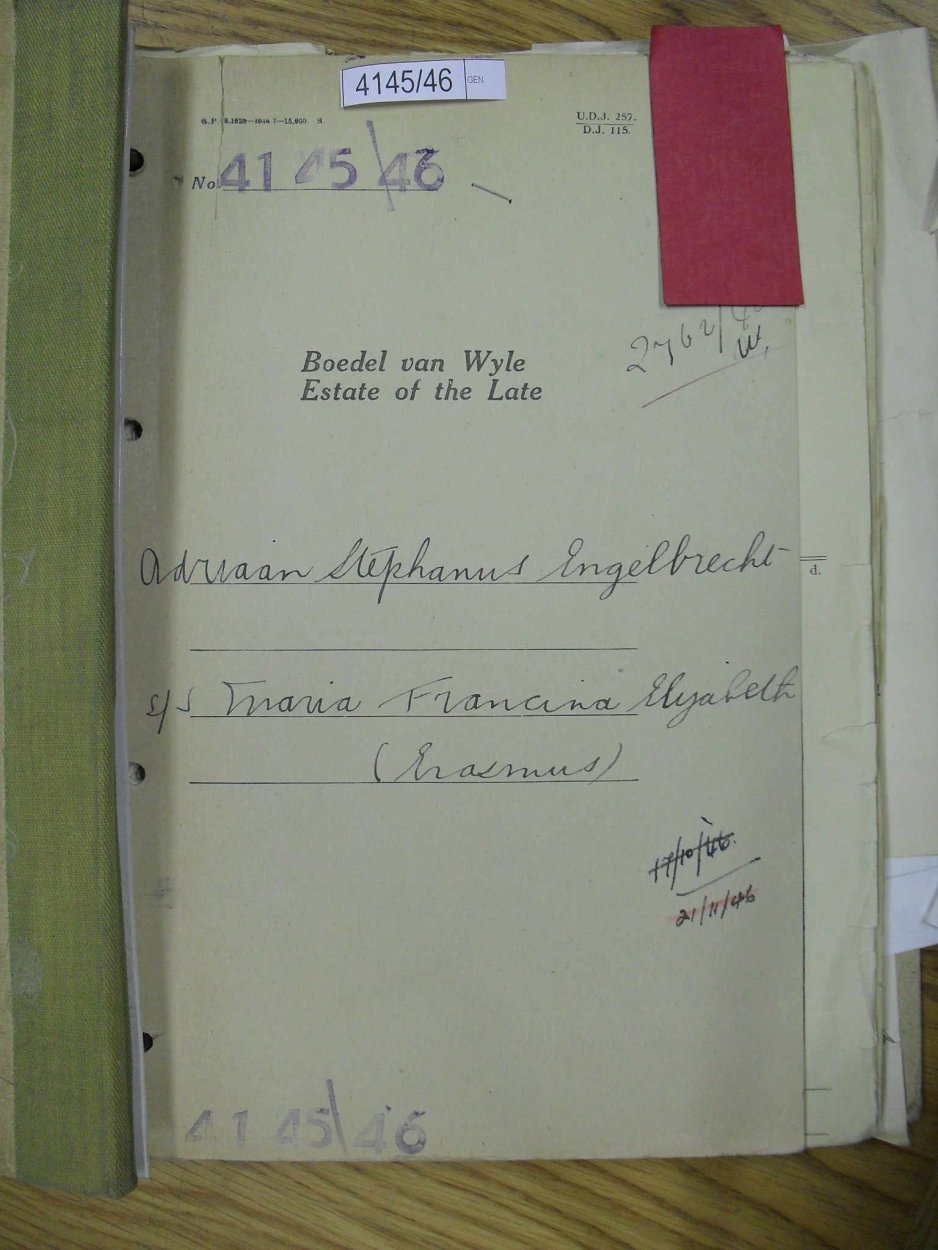 4145/46 GEN
G.P. S.1828—1946 7—15,000. S.
U.D.J. 257.
D.J. 115.
No. 4145/46
2762/
Boedel van Wyle
Estate of the Late
Adriaan Stephanus Engelbrecht
d.
s/s Maria Francina Elizabeth
(Erasmus)
17/10/46.
21/11/46
4145/46